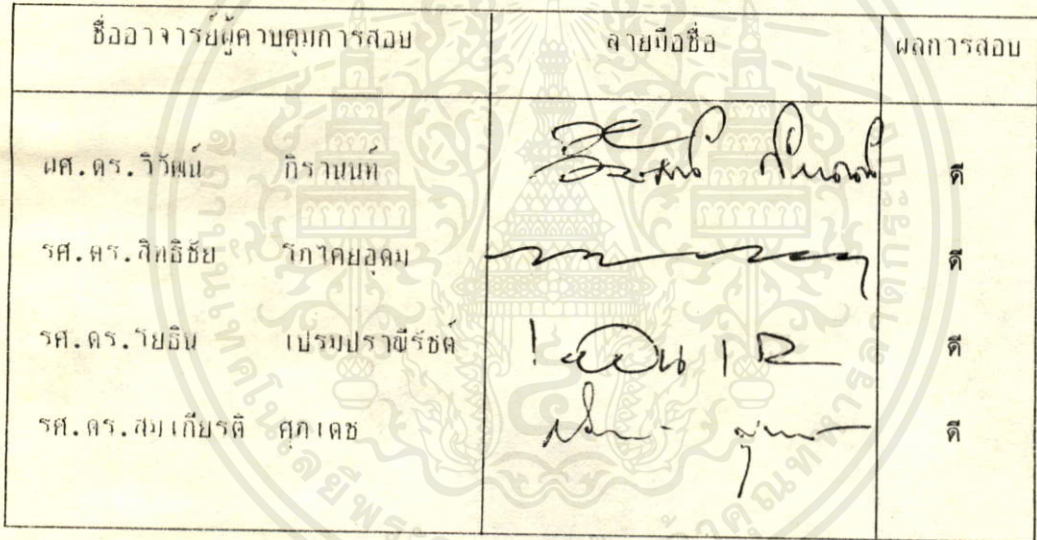 ชื่ออาจารย์ผู้ควบคุมการสอบ ลายมือชื่อ ผลการสอบ
ผศ.ดร.วิวัฒน์ กิรานนท์ ดี
รศ.ดร.สิทธิชัย โภไคยอุดม ดี
รศ.ดร.โยธิน เปรมปราณีรัชต์ ดี
รศ.ดร.สมเกียรติ ศุภเดช ดี